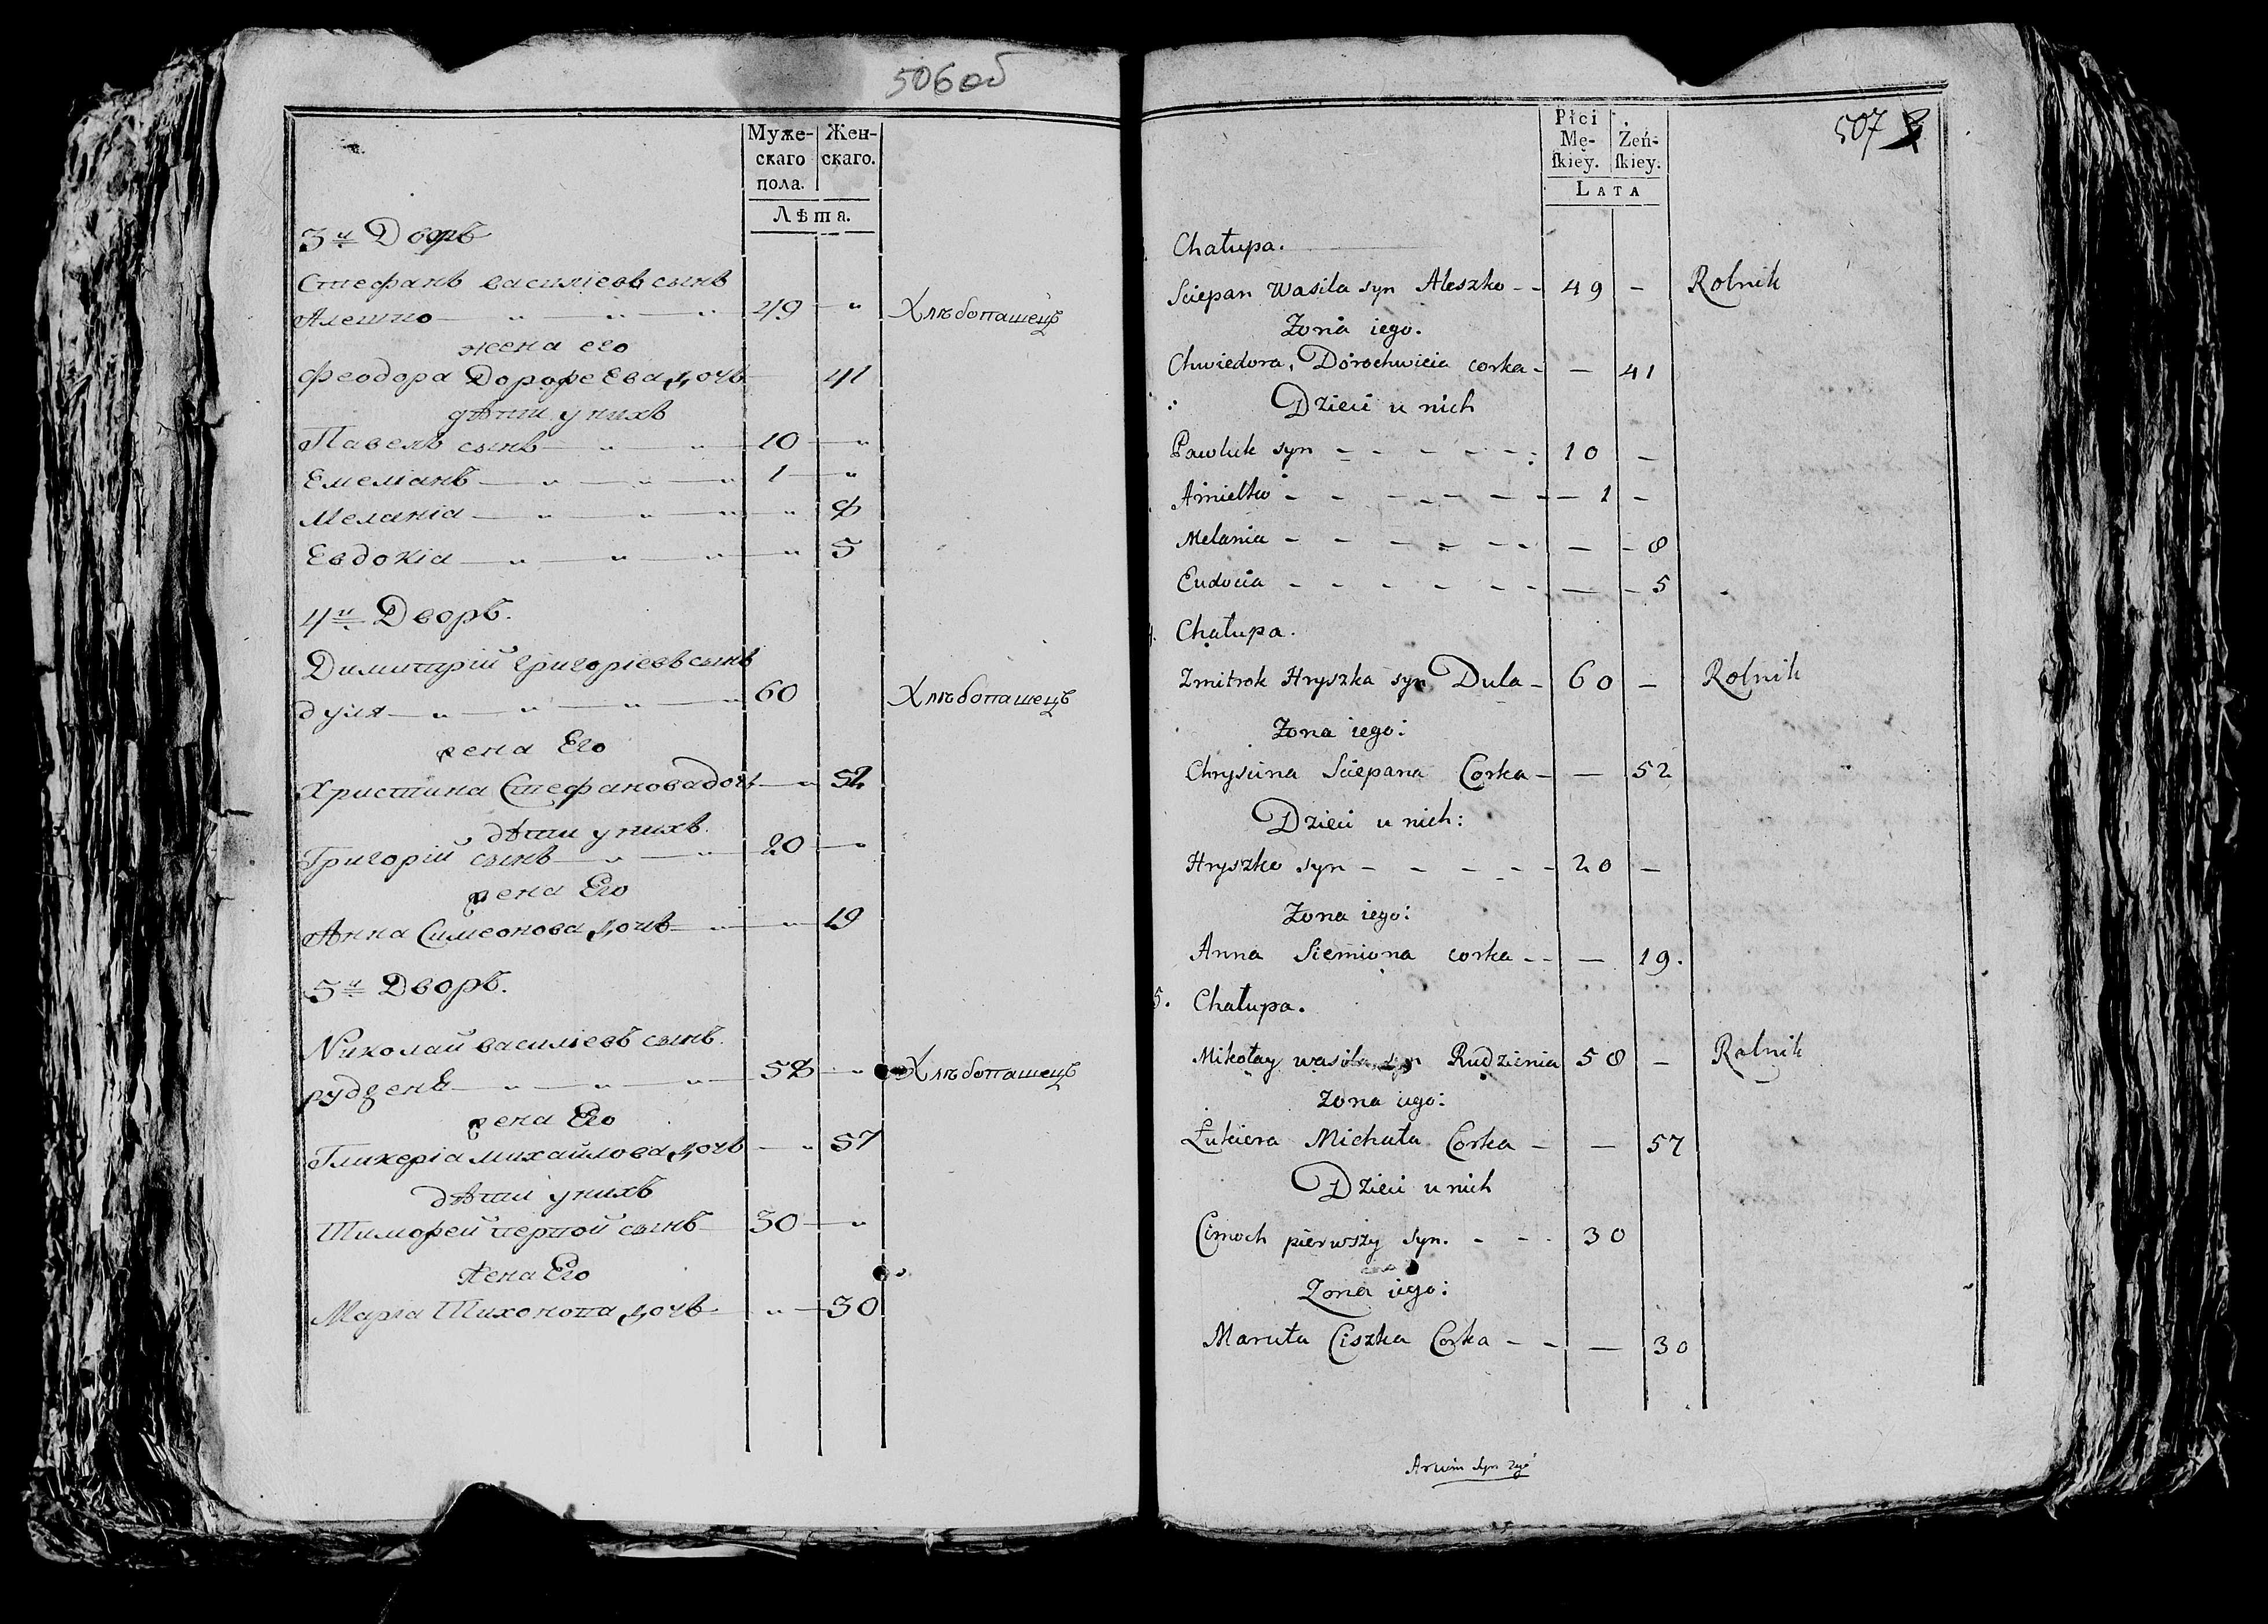 506 об
Муже-
скаго
пола.
Жен-
скаго.
Лѣта.
3й Дворъ
Стефанъ василіевъ сынъ
Алешко 49 Хлѣбопашецъ
жена его
Феодора Дорофеева дочь 41
дѣти у нихъ
Павелъ сынъ 10
Емеліанъ 1
Меланіа 8
Евдокіа 5
4й Дворъ.
Димитрій григоріевъ сынъ
дуля 60 Хлѣбопашецъ
жена Его
Христина Стефанова дочь 52
дѣти у нихъ.
Григорій сынъ 20
жена Его
Анна Симеонова дочь 19
5й Дворъ.
Николай василіевъ сынъ.
рудзень 58 Хлѣбопашецъ
жена Его
Гликеріа михайлова дочь 57
дѣти у нихъ
Тимофей первой сынъ 30
жена Его
Маріа Тихонова дочь 30
507
Płci
Mę-
ſkiey.
Żeń-
ſkiey.
LATA
Chałupa.
Sciepan Wasila syn Aleszko - - 49 - Rolnik
Zona iego.
Chwiedora, Dorochwieia corka - - 41
Dzieci u nich
Pawluk syn - - - - - 10 -
Amielko - - - - - - 1 -
Melania - - - - - - - 8
Eudocia - - - - - - - 5
Chałupa.
Zmitrok Hryszka syn Dula - 60 - Rolnik
Zona iego:
Chryscina Sciepana Corka - - 52
Dzieci u nich:
Hryszko syn - - - - - 20 -
Zona iego:
Anna Siemiona corka - - - 19.
5. Chałupa.
Mikołay wasila syn Rudzienia 58 - Rolnik
Zona iego:
Łukiera Michała Corka - - 57
Dzieci u nich
Cimoch pierwszy syn. - - - 30
Zona iego:
Maruta Ciszka Corka - - - 30
syn